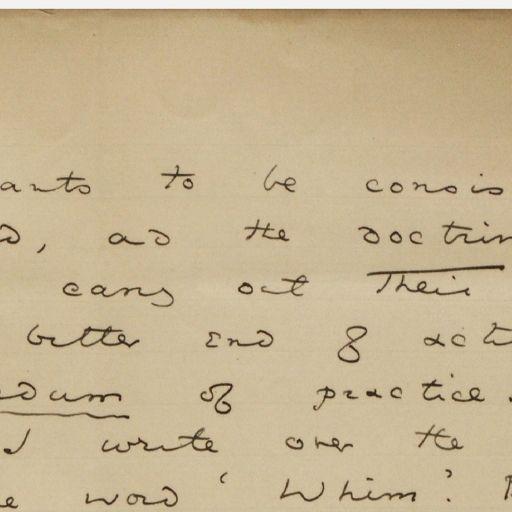 ants to be consis
d, and the doctrin
carry out their
bitter end of acti
edum of practice.
I write over the
e word 'Whim'.